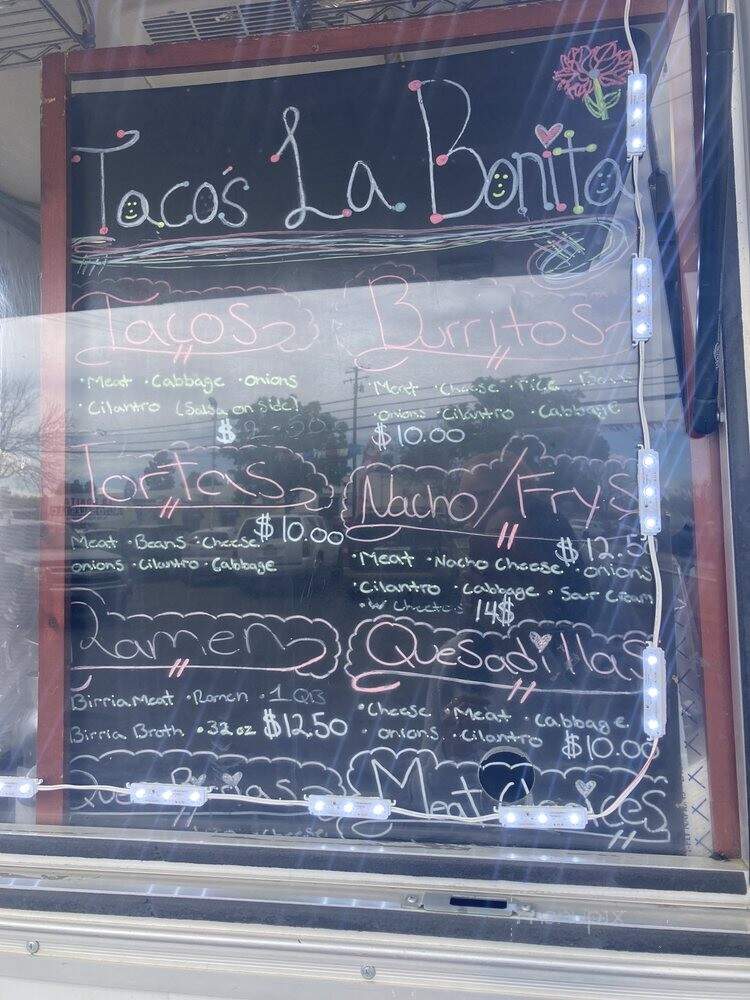 Taco's La Bonita
Tacos
• Meat • Cabbage • onions
• Cilantro (Salsa on side)
$
Burritos
• Meat • Cheese • rice
• onions • Cilantro • Cabbage
$10.00
Tortas
$10.00
Meat • Beans • Cheese
onions • Cilantro • Cabbage
Nacho/Frys
$12.5
• Meat • Nacho Cheese • onions
• Cilantro • Cabbage • Sour Cream
• W Cheetos 14$
Ramen
Birria Meat • Ramen • 1 QB
Birria Broth • 32 oz $12.50
Quesadillas
• Cheese • Meat • Cabbage
• onions • Cilantro $10.00
Meat Choices